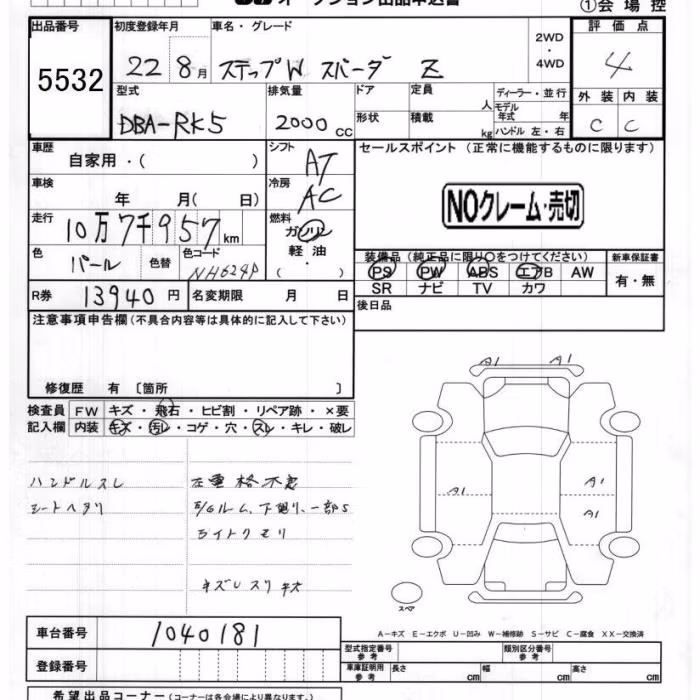 オークション出品申込書
①会場控
出品番号
5532
初度登録年月
22 8月
車名・グレード
ステップW スパーダ Z
2WD
・
4WD
評価点
4
外装 内装
C C
型式
DBA-RK5
排気量
2000 CC
ドア
形状
定員 人
積載 kg
ディーラー・並行
モデル年式 年
ハンドル 左・右
車歴
自家用・( )
シフト
AT
セールスポイント (正常に機能するものに限ります)
NOクレーム・売切
車検
年 月( 日)
冷房
AC
走行
10万7千957km
燃料
ガソリン
軽油
( )
色
パール
色替
色コード
NH624P
装備品 (純正品に限り○をつけてください)
PS PW ABS エアB AW
SR ナビ TV カワ
新車保証書
有・無
R券 13940円
名変期限 月 日
後日品
注意事項申告欄(不具合内容等は具体的に記入して下さい)
修復歴 有 〔箇所 〕
検査員記入欄
FW キズ・飛石・ヒビ割・リペア跡・×要
内装 キズ・汚レ・コゲ・穴・スレ・キレ・破レ
ハンドルスレ
シートヘタリ
ライトクモリ
A1 A1
A1
A1
A1
スペア
A-キズ E-エクボ U-凹み W-補修跡 S-サビ C-腐食 XX-交換済
車台番号 1040181
登録番号
型式指定番号 参考
類別区分番号 参考
車庫証明用 参考
長さ cm 幅 cm 高さ cm
希望出品コーナー(コーナーは各会場により異なります。)